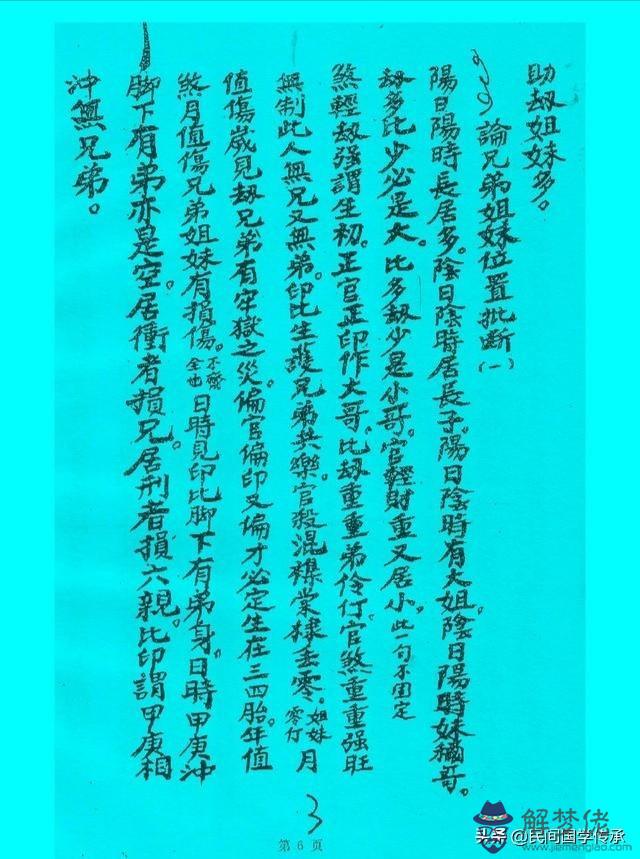 助劫姐妹多。
論兄弟姐妹位置批斷(一)
陽日陽時長居多。陰日陰時居長子。陽日陰時有大姐。陰日陽時妹稱哥。
劫多比少必是大。比多劫少是小哥。官輕財重又居小。此一句不固定
煞輕劫强謂生初。正官正印作大哥。比劫重重弟伶仃。官煞重重强旺
無制此人無兄又無弟。印比生護兄弟共樂。官殺混襍棠棣垂零。姐妹零仃 月
值傷歲見劫兄弟有牢獄之災。偏官偏印又偏才必定生在三四胎。年值
煞月值傷兄弟姐妹有損傷。不齊全也 日時見印比脚下有弟身。日時甲庚沖
脚下有弟亦是空。居衝者損兄。居刑者損六親。比印謂甲庚相
沖無兄弟。
3
第 6 页
解梦佬
www.jiemenglao.com
头条 @民间国学传承